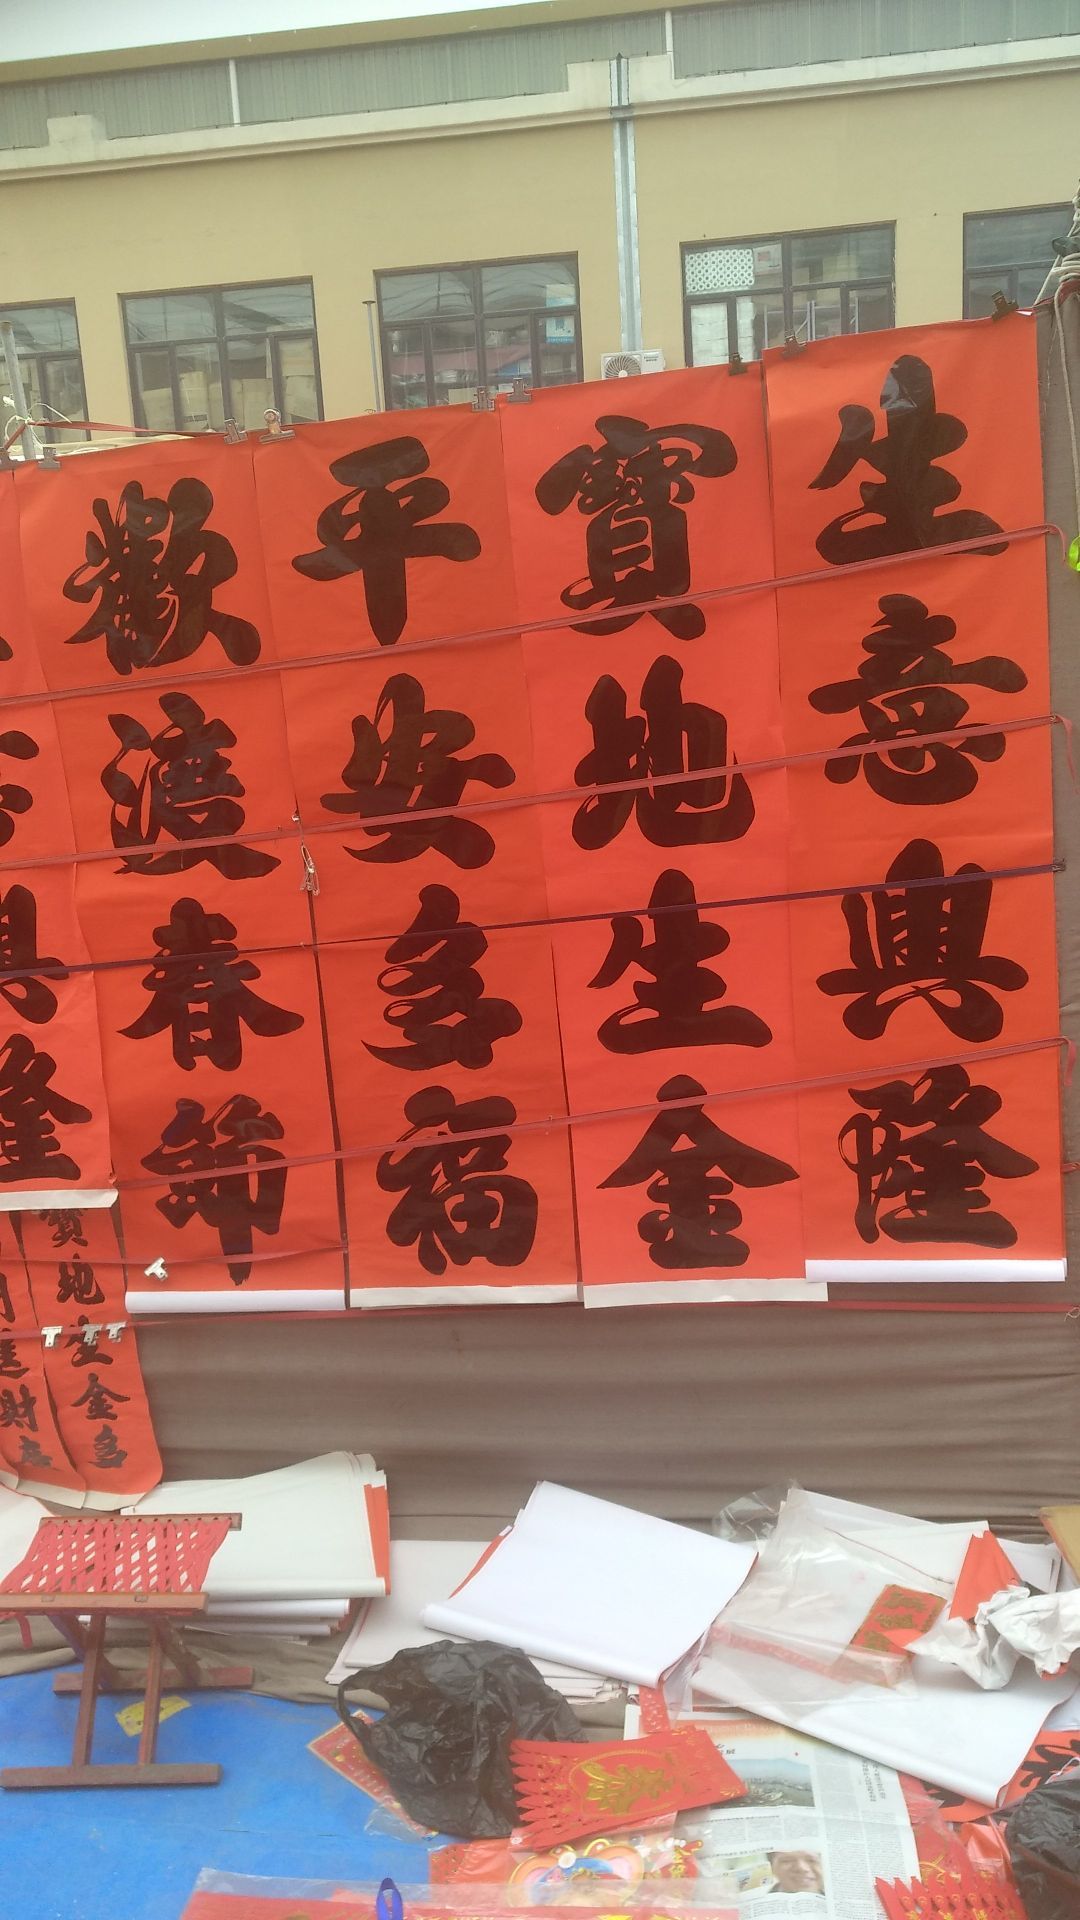 生意興隆
寶地生金
平安多福
歡渡春節
興隆
寶地生金多
進財